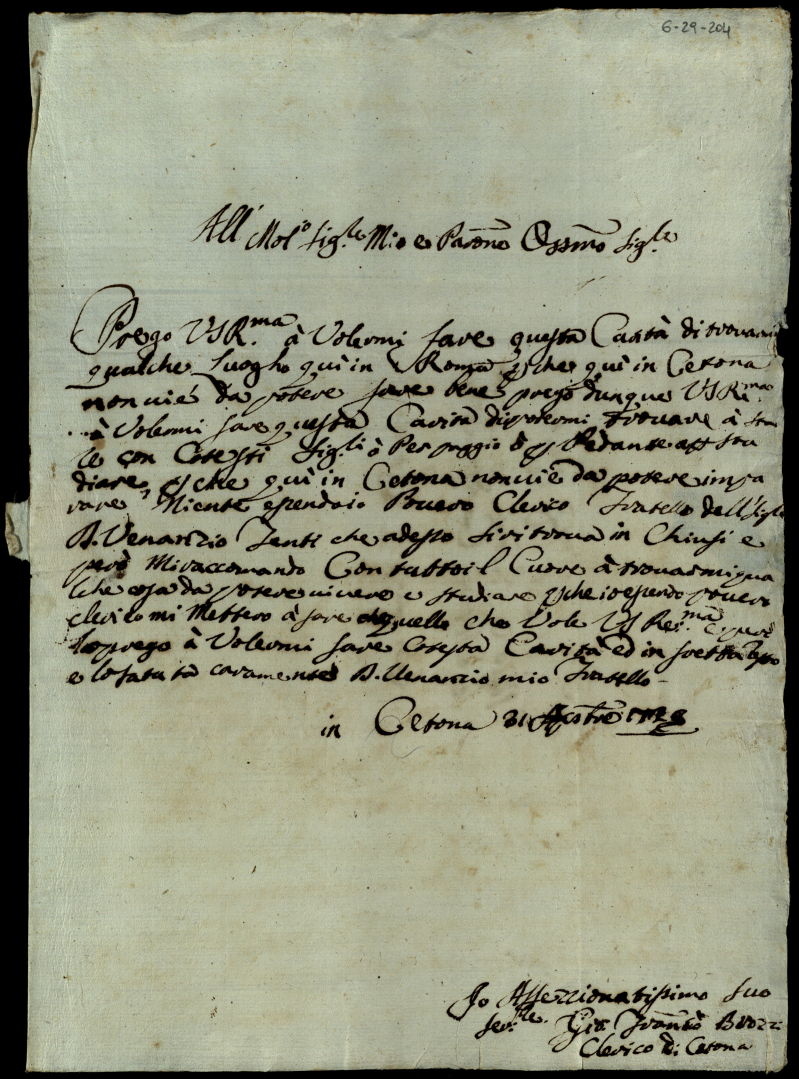 6-29-204
All' Mol.o Sig.le Mio e Parone Ossmo Sig.le
Prego VSR.ma à Volermi fare questa Carità di trovarmi
qualche Luogho qui in Roma p che qui in Cetona
non vie da potere fare bene prego dunque VSRi.ma
à Volermi fare questa Carità di potermi trovare à sta
re con Cotesti Sig.li ò Per paggio ò p Pedante app stu
diare, p che qui in Cetona non vie da potere impa
rare Niente essendo io Povero Clerico Fratello dell Sig.le
D. Venanzio Zenti che adesso si ritrova in Chiusi e
però Mi raccomando Con tutto il Cuore à trovarmi qua
lche cosa da potere vivere e studiare p che io essendo povero
clerico mi Mettero à fare quello che Vole VS Rei.ma e però
lo prego à Volermi fare Cotesta Carità ed in fretta
e lo saluta caramente D. Venanzio mio Fratello
in Cetona 21
Jo Affezzionatissimo Suo
Ser.re Gio Franco Bozzi
Clerico di Cetona